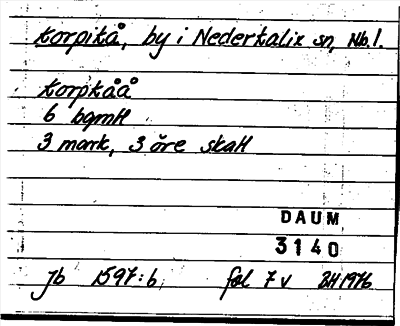 Korpikå, by i Nederkalix sn, Nb.l.
Korpkåå
6 bgmH
3 mark, 3 öre skaH
DAUM
3140
Jb 1597:b, fol 7 v BH 1976